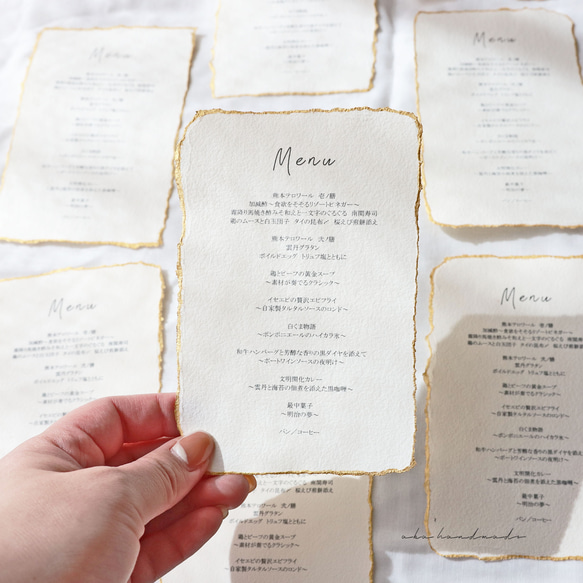 Menu
熊本アロワール 壱ノ膳
加減酢～食欲をそそるリゾートビネガー～
南関寿司
鶏のムースと白玉団子 タイの昆布〆 桜えび煎餅添え
熊本アロワール 弐ノ膳
雲丹グラタン
ボイルドエッグ トリュフ塩とともに
鶏とビーフの黄金スープ
～素材が奏でるクラシック～
イセエビの贅沢エビフライ
～自家製タルタルソースのロンド～
白くま物語
～ボンボニエールのハイカラ氷～
和牛ハンバーグと芳醇な香りの黒ダイヤを添えて
～ポートワインソースの夜明け～
文明開化カレー
～雲丹と海苔の佃煮を添えた黒咖喱～
最中菓子
～明治の夢～
パン／コーヒー